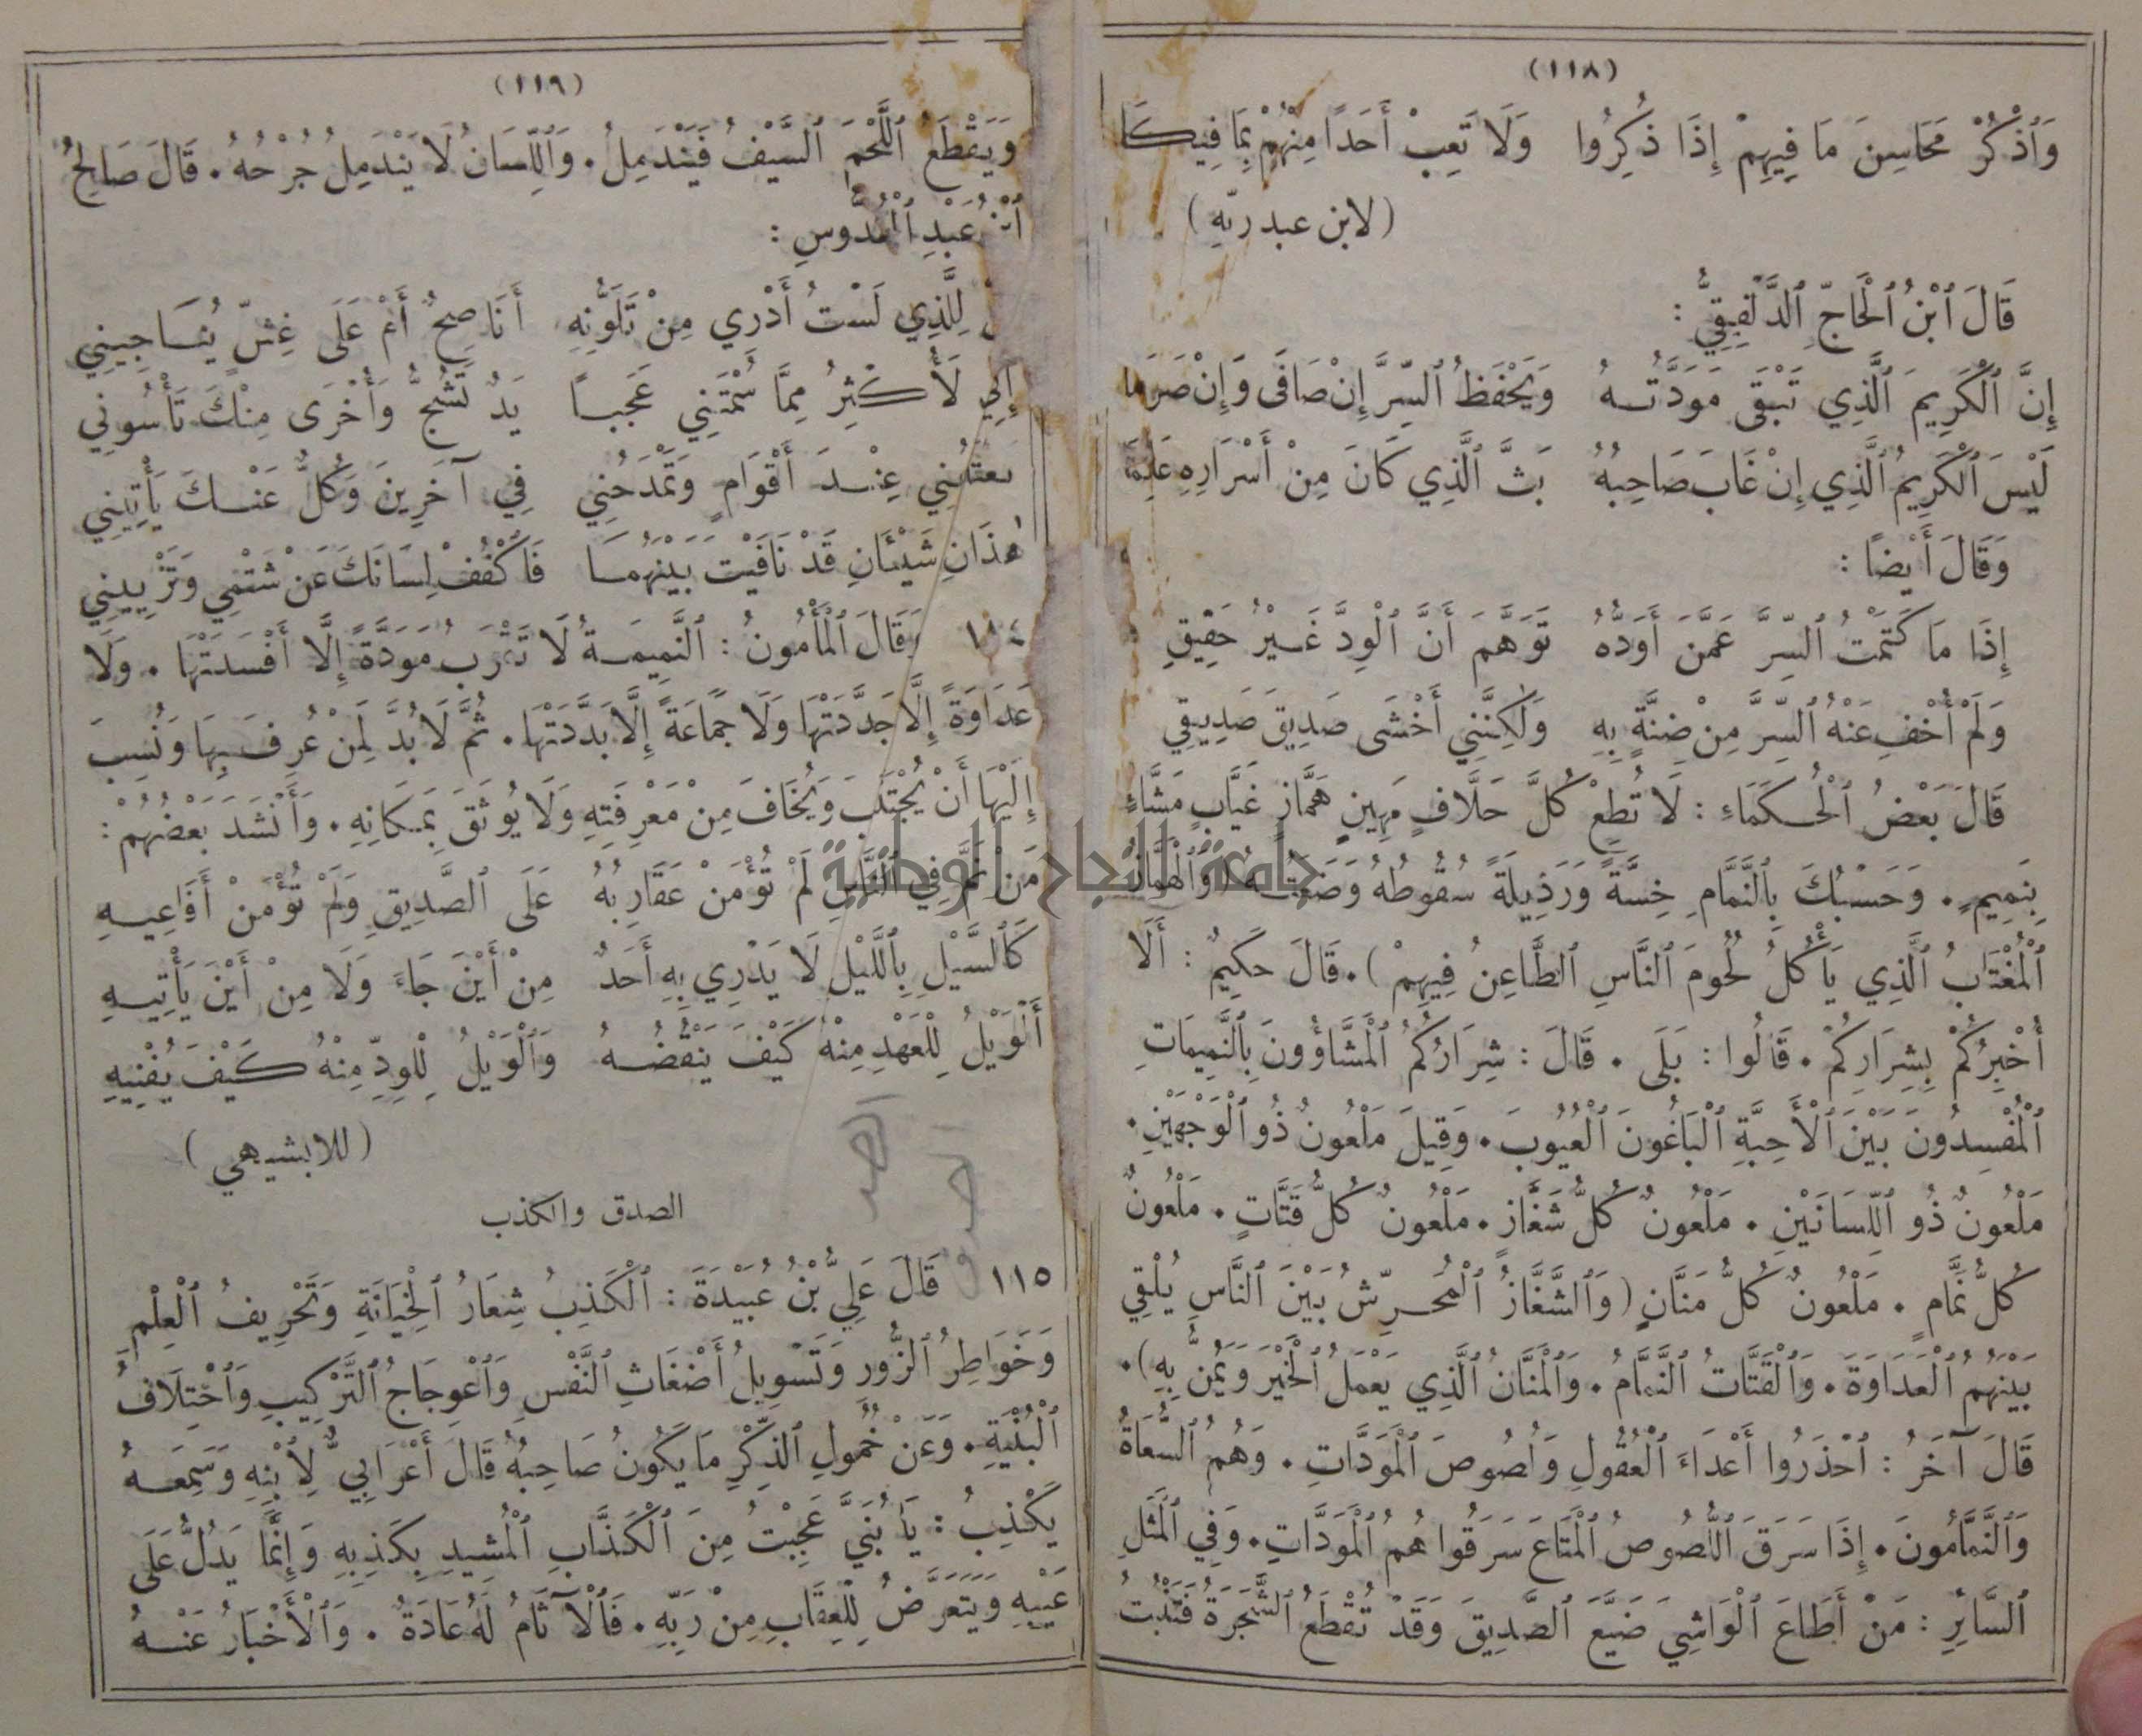 (١١٨)
وَٱذْكُرْ مَحَاسِنَ مَا فِيهِمْ إِذَا ذُكِرُوا وَلَا تَعِبْ أَحَدًا مِنْهُمْ بِمَا فِيكَا
(لابن عبد ربّهِ)
قَالَ ٱبْنُ ٱلْحَاجِّ ٱلدَّلْفِيقِيُّ :
إِنَّ ٱلْكَرِيمَ ٱلَّذِي تَبْقَى مَوَدَّتُهُ وَيَحْفَظُ ٱلسِّرَّ إِنْ صَافَى وَإِنْ صَرَمَا
لَيْسَ ٱلْكَرِيمُ ٱلَّذِي إِنْ غَابَ صَاحِبُهُ بَثَّ ٱلَّذِي كَانَ مِنْ أَسْرَارِهِ عَلِمَا
وَقَالَ أَيْضًا :
إِذَا مَا كَتَمْتُ ٱلسِّرَّ عَمَّنْ أَوَدُّهُ تَوَهَّمَ أَنَّ ٱلْوِدَّ غَيْرُ حَقِيقِ
وَلَمْ أُخْفِ عَنْهُ ٱلسِّرَّ مِنْ ضِنَّةٍ بِهِ وَلٰكِنَّنِي أَخْشَى صَدِيقَ صَدِيقِي
قَالَ بَعْضُ ٱلْحُكَمَاءِ : لَا تُطِعْ كُلَّ حَلَّافٍ مَهِينٍ هَمَّازٍ غَيَّابٍ مَشَّاءٍ
بِنَمِيمٍ . وَحَسْبُكَ بِٱلنَّمَّامِ خِسَّةً وَرَذِيلَةً سُقُوطُهُ وَضَعَتُهُ (وَٱلْهَمَّازُ
ٱلْمُغْتَابُ ٱلَّذِي يَأْكُلُ لُحُومَ ٱلنَّاسِ ٱلطَّاعِنُ فِيهِمْ) . قَالَ حَكِيمٌ : أَلَا
أُخْبِرُكُمْ بِشِرَارِكُمْ . قَالُوا : بَلَى . قَالَ : شِرَارُكُمُ ٱلْمَشَّاؤُونَ بِٱلنَّمِيمَاتِ
ٱلْمُفْسِدُونَ بَيْنَ ٱلْأَحِبَّةِ ٱلْبَاغُونَ ٱلْعُيُوبَ . وَقِيلَ مَلْعُونٌ ذُو ٱلْوَجْهَيْنِ .
مَلْعُونٌ ذُو ٱللِّسَانَيْنِ . مَلْعُونٌ كُلُّ شَغَّازٍ . مَلْعُونٌ كُلُّ قَتَّاتٍ . مَلْعُونٌ
كُلُّ نَمَّامٍ . مَلْعُونٌ كُلُّ مَنَّانٍ (وَٱلشَّغَّازُ ٱلْمُحَرِّشُ بَيْنَ ٱلنَّاسِ يُلْقِي
بَيْنَهُمُ ٱلْعَدَاوَةَ . وَٱلْقَتَّاتُ ٱلنَّمَّامُ . وَٱلْمَنَّانُ ٱلَّذِي يَعْمَلُ ٱلْخَيْرَ وَيَمُنُّ بِهِ) .
قَالَ آخَرُ : ٱحْذَرُوا أَعْدَاءَ ٱلْعُقُولِ وَلُصُوصَ ٱلْمَوَدَّاتِ . وَهُمُ ٱلسُّعَاةُ
وَٱلنَّمَّامُونَ . إِذَا سَرَقَ ٱللُّصُوصُ ٱلْمَتَاعَ سَرَقُوا هُمُ ٱلْمَوَدَّاتِ . وَفِي ٱلْمَثَلِ
ٱلسَّائِرِ : مَنْ أَطَاعَ ٱلْوَاشِيَ ضَيَّعَ ٱلصَّدِيقَ وَقَدْ تُقْطَعُ ٱلشَّجَرَةُ فَتَنْبُتُ
(١١٩)
وَيَقْطَعُ ٱللَّحْمَ ٱلسَّيْفُ فَيَنْدَمِلُ . وَٱللِّسَانُ لَا يَنْدَمِلُ جُرْحُهُ . قَالَ صَالِحُ
ٱبْنُ عَبْدِ ٱلْقُدُّوسِ :
لِلَّذِي لَسْتُ أَدْرِي مِنْ تَلَوُّنِهِ أَنَاصِحٌ أَمْ عَلَى غِشٍّ يُنَاجِينِي
إِنِّي لَأُكْثِرُ مِمَّا سُمْتَنِي عَجَبًا يَدٌ تَشُجُّ وَأُخْرَى مِنْكَ تَأْسُونِي
تَغْتَابُنِي عِنْدَ أَقْوَامٍ وَتَمْدَحُنِي فِي آخَرِينَ وَكُلٌّ عَنْكَ يَأْتِينِي
هٰذَانِ شَيْئَانِ قَدْ نَافَيْتَ بَيْنَهُمَا فَٱكْفُفْ لِسَانَكَ عَنْ شَتْمِي وَتَزْيِينِي
١١٤ وَقَالَ ٱلْمَأْمُونُ : ٱلنَّمِيمَةُ لَا تَقْرَبُ مَوَدَّةً إِلَّا أَفْسَدَتْهَا . وَلَا
عَدَاوَةً إِلَّا جَدَّدَتْهَا وَلَا جَمَاعَةً إِلَّا بَدَّدَتْهَا . ثُمَّ لَا بُدَّ لِمَنْ عُرِفَ بِهَا وَنُسِبَ
إِلَيْهَا أَنْ يُجْتَنَبَ وَيُخَافَ مِنْ مَعْرِفَتِهِ وَلَا يُوثَقَ بِمَكَانِهِ . وَأَنْشَدَ بَعْضُهُمْ :
مَنْ نَمَّ فِي ٱلنَّاسِ لَمْ تُؤْمَنْ عَقَارِبُهُ عَلَى ٱلصَّدِيقِ وَلَمْ تُؤْمَنْ أَفَاعِيهِ
كَٱلسَّيْلِ بِٱللَّيْلِ لَا يَدْرِي بِهِ أَحَدٌ مِنْ أَيْنَ جَاءَ وَلَا مِنْ أَيْنَ يَأْتِيهِ
أَلْوَيْلُ لِلْعَهْدِ مِنْهُ كَيْفَ يَنْقُضُهُ وَٱلْوَيْلُ لِلْوِدِّ مِنْهُ كَيْفَ يُفْنِيهِ
(للابشيهي)
الصدق والكذب
١١٥ قَالَ عَلِيُّ بْنُ عُبَيْدَةَ : ٱلْكَذِبُ شِعَارُ ٱلْخِيَانَةِ وَتَحْرِيفُ ٱلْعِلْمِ
وَخَوَاطِرُ ٱلزُّورِ وَتَسْوِيلُ أَضْغَاثِ ٱلنَّفْسِ وَٱعْوِجَاجُ ٱلتَّرْكِيبِ وَٱخْتِلَافُ
ٱلْبُنْيَةِ . وَعَنْ خُمُولِ ٱلذِّكْرِ مَا يَكُونُ صَاحِبُهُ قَالَ أَعْرَابِيٌّ لِٱبْنِهِ وَسَمِعَهُ
يَكْذِبُ : يَا بُنَيَّ عَجِبْتُ مِنَ ٱلْكَذَّابِ ٱلْمُشِيدِ بِكَذِبِهِ وَإِنَّمَا يَدُلُّ عَلَى
عَيْبِهِ وَيَتَعَرَّضُ لِلْعِقَابِ مِنْ رَبِّهِ . فَٱلْآثَامُ لَهُ عَادَةٌ . وَٱلْأَخْبَارُ عَنْهُ
جامعة النجاح الوطنية